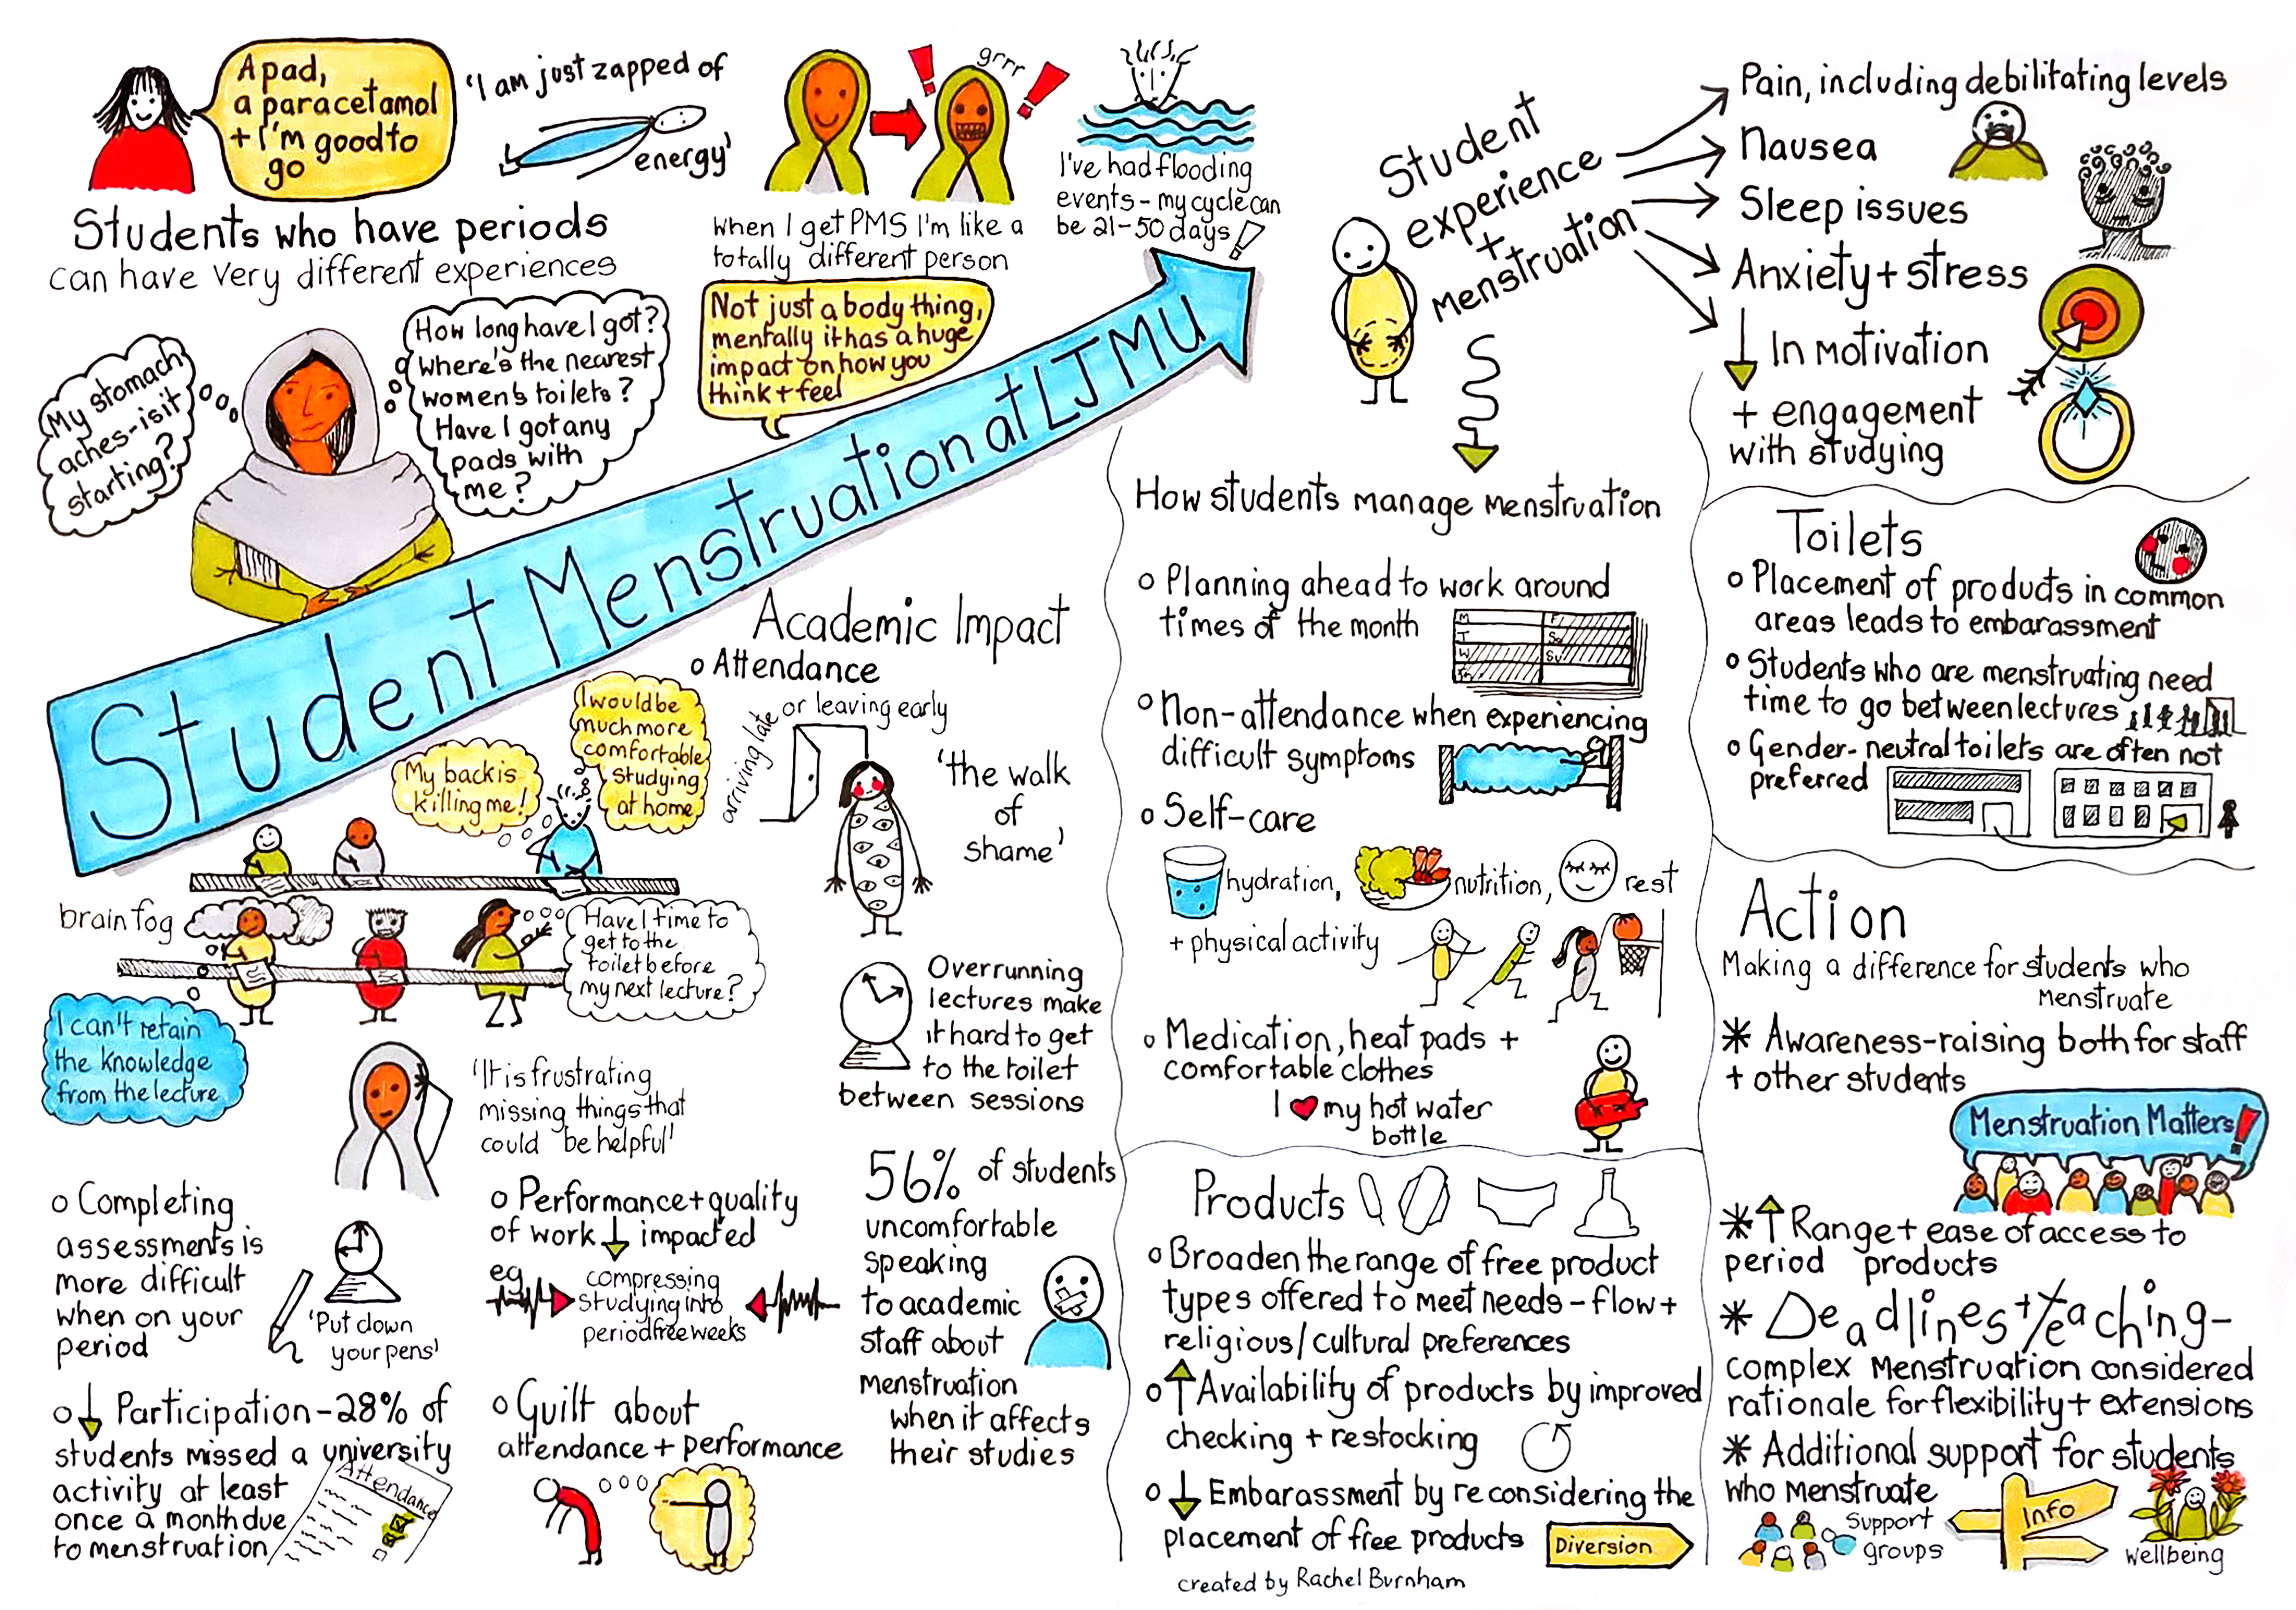 A pad,
a paracetamol
+ I'm good to
go
'I am just zapped of
energy'
grrr
When I get PMS I'm like a
totally different person
I've had flooding
events - my cycle can
be 21-50 days!
Students who have periods
can have very different experiences
My stomach
aches - is it
starting?
How long have I got?
Where's the nearest
women's toilets?
Have I got any
pads with
me?
Not just a body thing,
mentally it has a huge
impact on how you
think + feel
Student Menstruation at LJMU
Student
experience
+
Menstruation
Pain, including debilitating levels
Nausea
Sleep issues
Anxiety + stress
↓ In motivation
+ engagement
with studying
Academic Impact
o Attendance
arriving late
or leaving early
'the walk
of
shame'
My back is
killing me!
I would be
much more
comfortable
studying
at home
brain fog
Have I time to
get to the
toilet before
my next lecture?
I can't retain
the knowledge
from the lecture
'It is frustrating
missing things that
could be helpful'
Overrunning
lectures make
it hard to get
to the toilet
between sessions
o Completing
assessments is
more difficult
when on your
period
'Put down
your pens'
o Performance + quality
of work ↓ impacted
eg
compressing
studying into
period free weeks
56% of students
uncomfortable
speaking
to academic
staff about
menstruation
when it affects
their studies
o ↓ Participation - 28% of
students missed a university
activity at least
once a month due
to menstruation
Attendance
o Guilt about
attendance + performance
How students manage menstruation
o Planning ahead to work around
times of the month
M
T
W
Th
F
Sa
Su
o Non-attendance when experiencing
difficult symptoms
o Self-care
hydration, nutrition, rest
+ physical activity
o Medication, heat pads +
comfortable clothes
I ♥ my hot water
bottle
Products
o Broaden the range of free product
types offered to meet needs - flow +
religious/cultural preferences
o ↑ Availability of products by improved
checking + restocking
o ↓ Embarassment by reconsidering the
placement of free products
Diversion
created by Rachel Burnham
Toilets
o Placement of products in common
areas leads to embarassment
o Students who are menstruating need
time to go between lectures
o Gender-neutral toilets are often not
preferred
Action
Making a difference for students who
menstruate
* Awareness-raising both for staff
+ other students
Menstruation Matters!
* ↑ Range + ease of access to
period products
* Deadlines + teaching -
complex menstruation considered
rationale for flexibility + extensions
* Additional support for students
who menstruate
support
groups
Info
Wellbeing